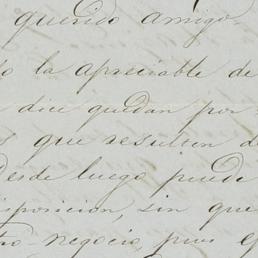 querido amigo
la apreciable de
dice quedan por
que resulten de
desde luego puede
posicion, sin que
negocio, pues